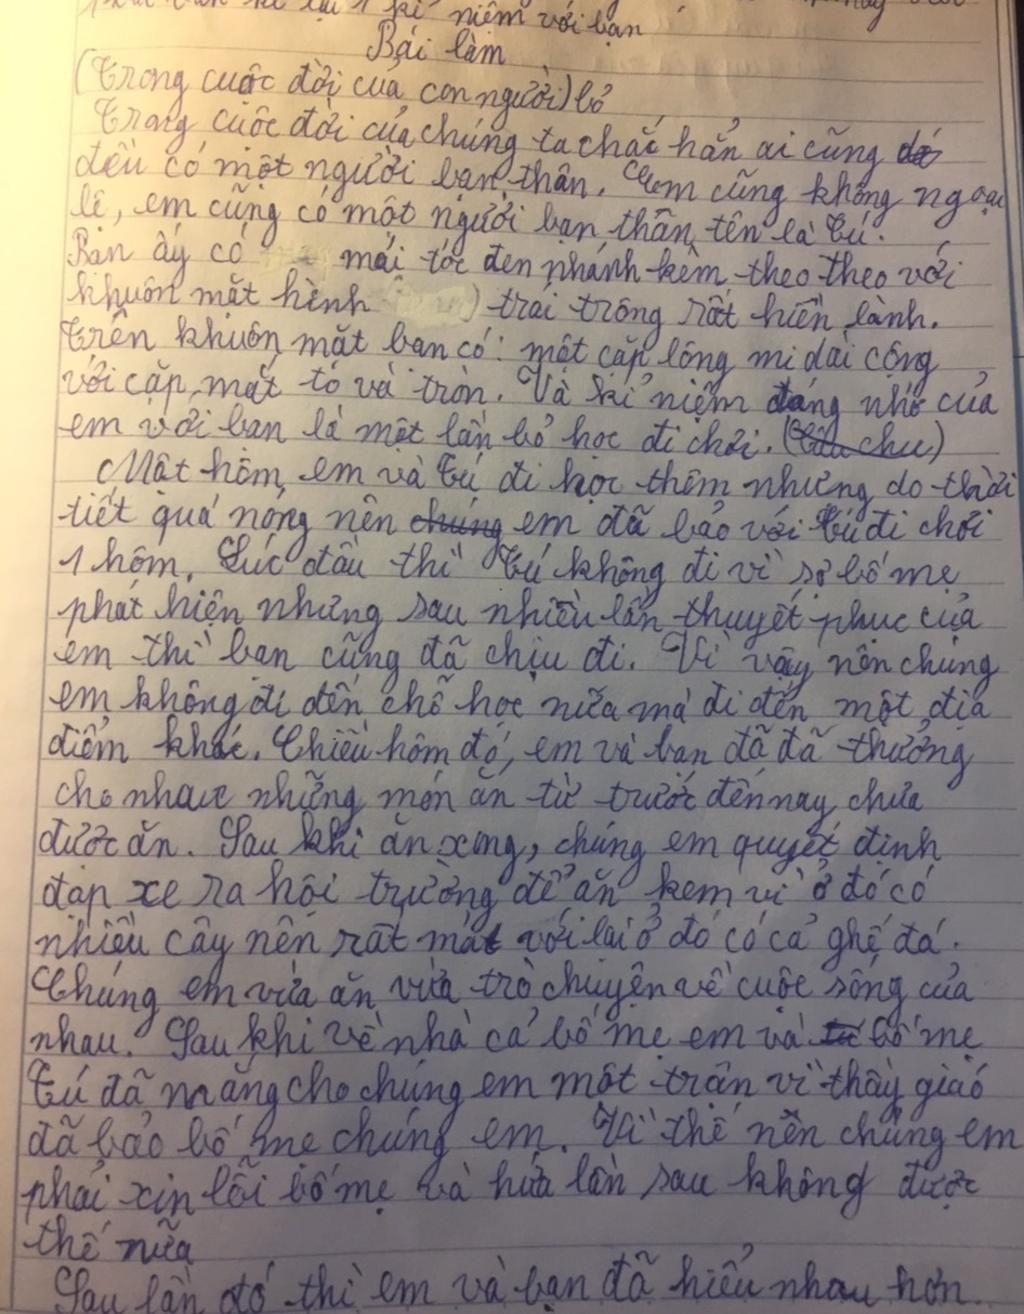 kỉ niệm với bạn
Bài làm
(Trong cuộc đời của con người) bỏ
Trong cuộc đời của chúng ta chắc hẳn ai cũng
đều có một người bạn thân. Em cũng không ngoại
lệ, em cũng có một người bạn thân tên là Tú.
Bạn ấy có mái tóc đen nhánh kèm theo theo với
khuôn mặt hình trái trông rất hiền lành.
Trên khuôn mặt bạn có một cặp lông mi dài cộng
với cặp mắt to và tròn. Và kỉ niệm đáng nhớ của
em với bạn là một lần bỏ học đi chơi.
Một hôm, em và Tú đi học thêm nhưng do thời
tiết quá nóng nên chúng em đã bảo với Tú đi chơi
1 hôm. Lúc đầu thì Tú không đi vì sợ bố mẹ
phát hiện nhưng sau nhiều lần thuyết phục của
em thì bạn cũng đã chịu đi. Vì vậy nên chúng
em không đi đến chỗ học nữa mà đi đến một địa
điểm khác. Chiều hôm đó, em và bạn đã đã thưởng
cho nhau những món ăn từ trước đến nay chưa
được ăn. Sau khi ăn xong, chúng em quyết định
đạp xe ra hội trường để ăn kem vì ở đó có
nhiều cây nên rất mát với lại ở đó có cả ghế đá.
Chúng em vừa ăn vừa trò chuyện về cuộc sống của
nhau. Sau khi về nhà cả bố mẹ em và bố mẹ
Tú đã mắng cho chúng em một trận vì thầy giáo
đã bảo bố mẹ chúng em. Vì thế nên chúng em
phải xin lỗi bố mẹ và hứa lần sau không được
thế nữa
Sau lần đó thì em và bạn đã hiểu nhau hơn.